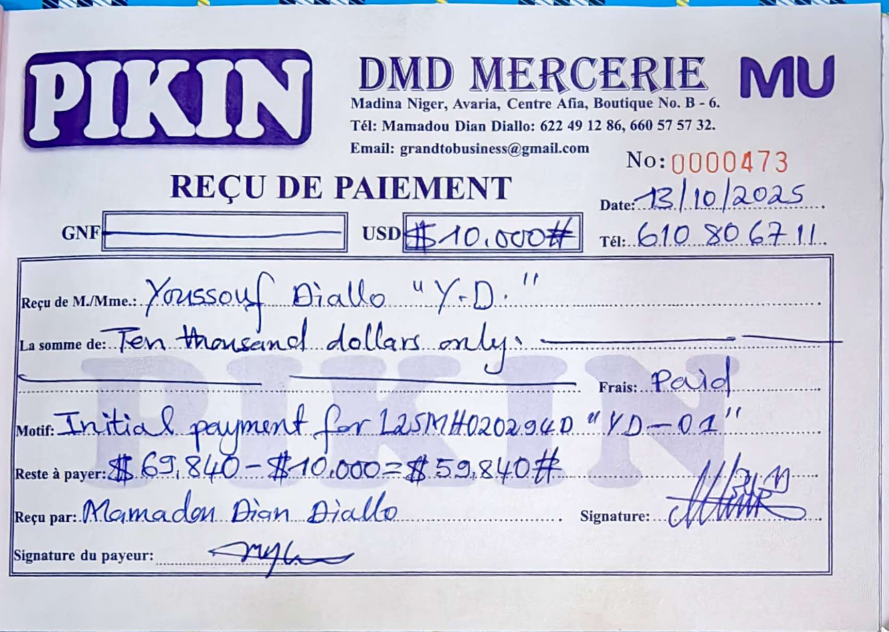 PIKIN
DMD MERCERIE
MU
Madina Niger, Avaria, Centre Afia, Boutique No. B - 6.
Tél: Mamadou Dian Diallo: 622 49 12 86, 660 57 57 32.
Email: grandtobusiness@gmail.com
No: 0000473
REÇU DE PAIEMENT
Date: 13/10/2025
GNF USD $10.000# Tél: 610 80 67 11
Reçu de M./Mme.: Youssouf Diallo "Y.D."
La somme de: Ten thousand dollars only.
Frais: Paid
PIKIN
Motif: Initial payment for L25MH020294D "YD-01"
Reste à payer: $69,840-$10.000=$59,840#
Reçu par: Mamadou Dian Diallo Signature:
Signature du payeur: